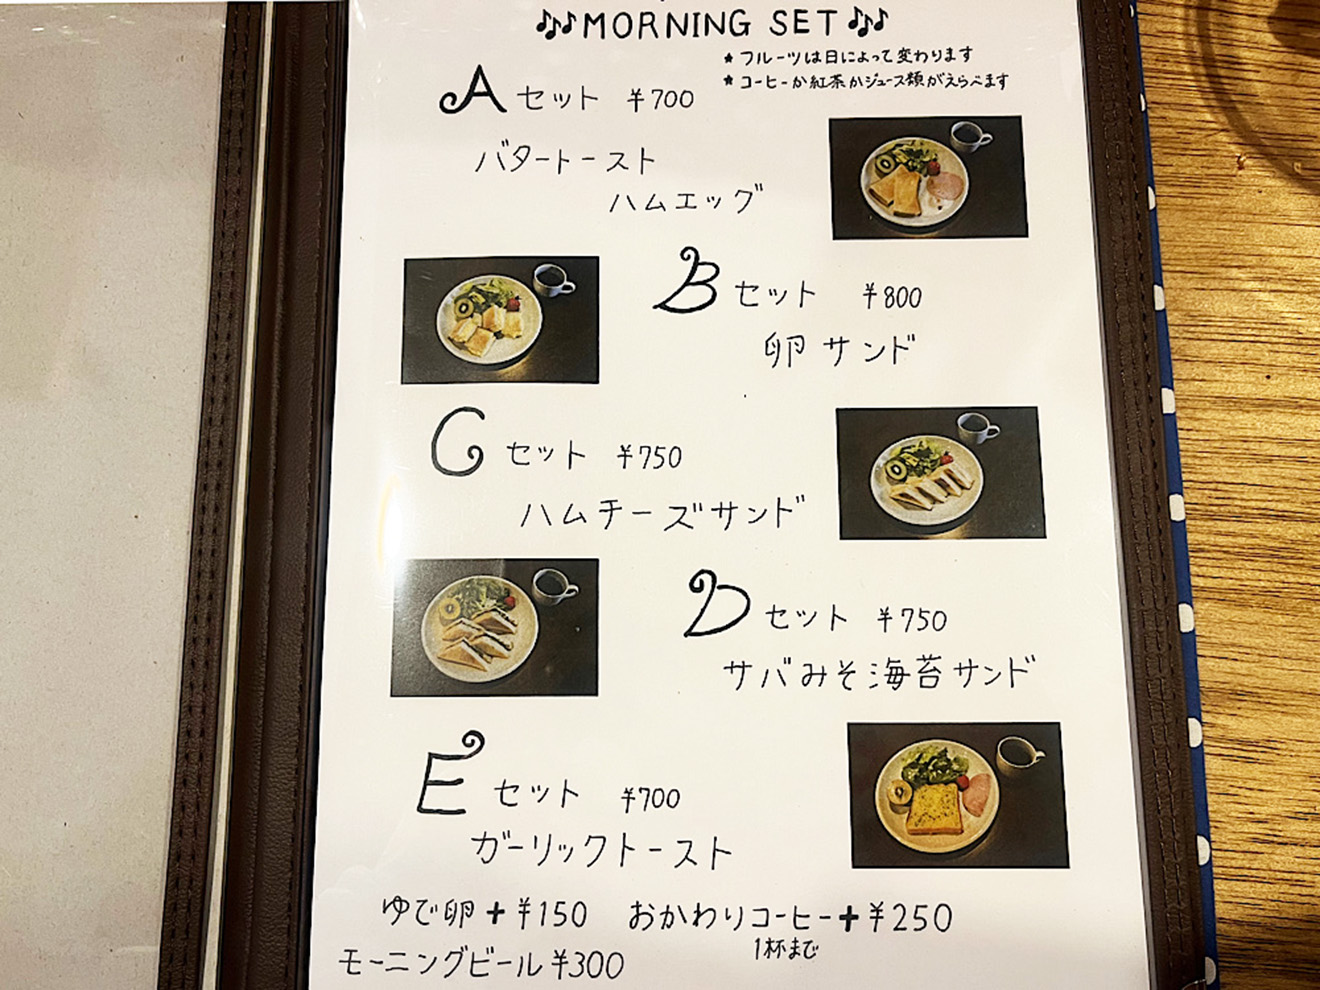 ♪♫MORNING SET♪♫
★ フルーツは日によって変わります
★ コーヒーか紅茶かジュース類がえらべます
Aセット ¥700
バタートースト
ハムエッグ
Bセット ¥800
卵サンド
Cセット ¥750
ハムチーズサンド
Dセット ¥750
サバみそ海苔サンド
Eセット ¥700
ガーリックトースト
ゆで卵+¥150 おかわりコーヒー+¥250
1杯まで
モーニングビール¥300